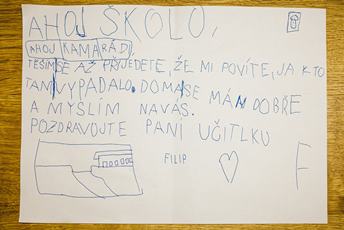 AHOJ ŠKOLO,
AHOJ KAMARÁDI.
TĚŠÍM SE AŽ PŘIJEDETE, ŽE MI POVÍTE, JAK TO
TAM VYPADALO. DOMA SE MÁM DOBŘE
A MYSLÍM NA VÁS.
POZDRAVUJTE PANÍ UČITLKU
FILIP
F